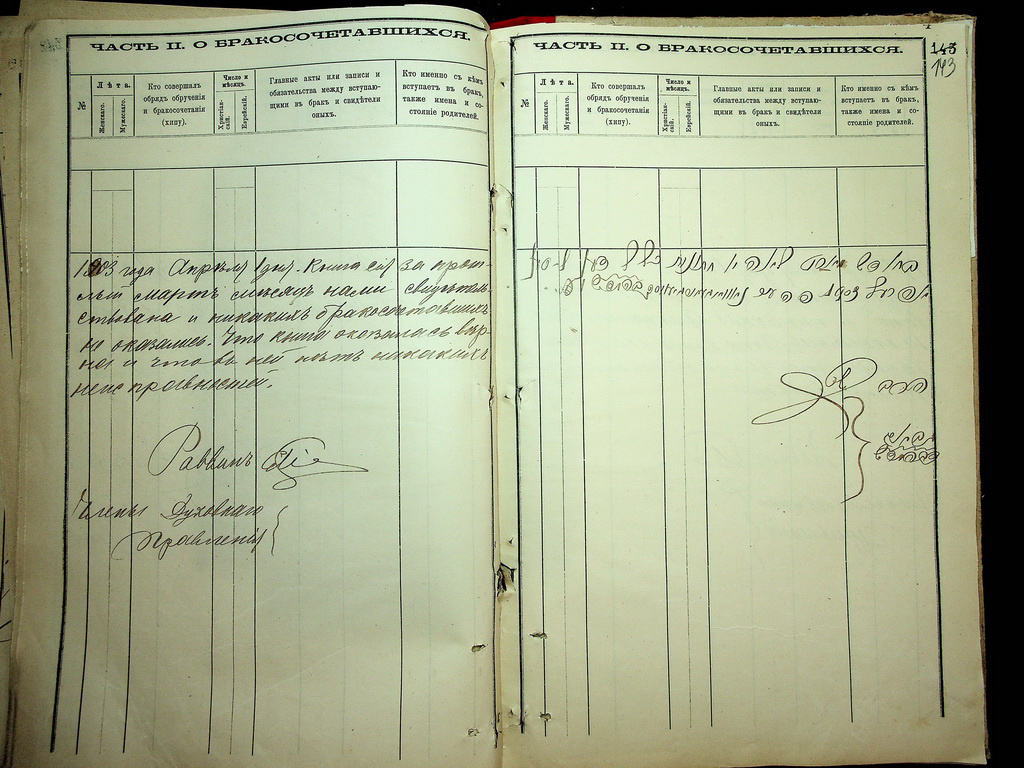 ЧАСТЬ II. О БРАКОСОЧЕТАВШИХСЯ.
№
Лѣта.
Женскаго.
Мужескаго.
Кто совершалъ
обрядъ обрученія
и бракосочетанія
(хипу).
Число и
мѣсяцъ.
Христіан-
скій.
Еврейскій.
Главные акты или записи и
обязательства между вступаю-
щими въ бракъ и свидѣтели
оныхъ.
Кто именно съ кѣмъ
вступаетъ въ бракъ,
также имена и со-
стояніе родителей.
1903 года Апрѣля 1 дня. Книга сія за прош-
лый Мартъ мѣсяцъ нами свидѣтель-
ствована и никакихъ бракосочетавшихся
не оказалось. Что книга оказалась вѣр-
ной и что въ ней нѣтъ никакихъ
неисправностей.
Раввинъ
Члены Духовнаго
Правленія
ЧАСТЬ II. О БРАКОСОЧЕТАВШИХСЯ.
143
143
№
Лѣта.
Женскаго.
Мужескаго.
Кто совершалъ
обрядъ обрученія
и бракосочетанія
(хипу).
Число и
мѣсяцъ.
Христіан-
скій.
Еврейскій.
Главные акты или записи и
обязательства между вступаю-
щими въ бракъ и свидѣтели
оныхъ.
Кто именно съ кѣмъ
вступаетъ въ бракъ,
также имена и со-
стояніе родителей.
הרב